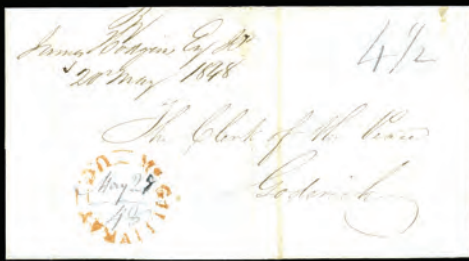 By
James Hodgins Esq JP
20 May 1848
4 1/2
The Clerk of the Peace
Goderich
McGILLIVRAY
May 27
48